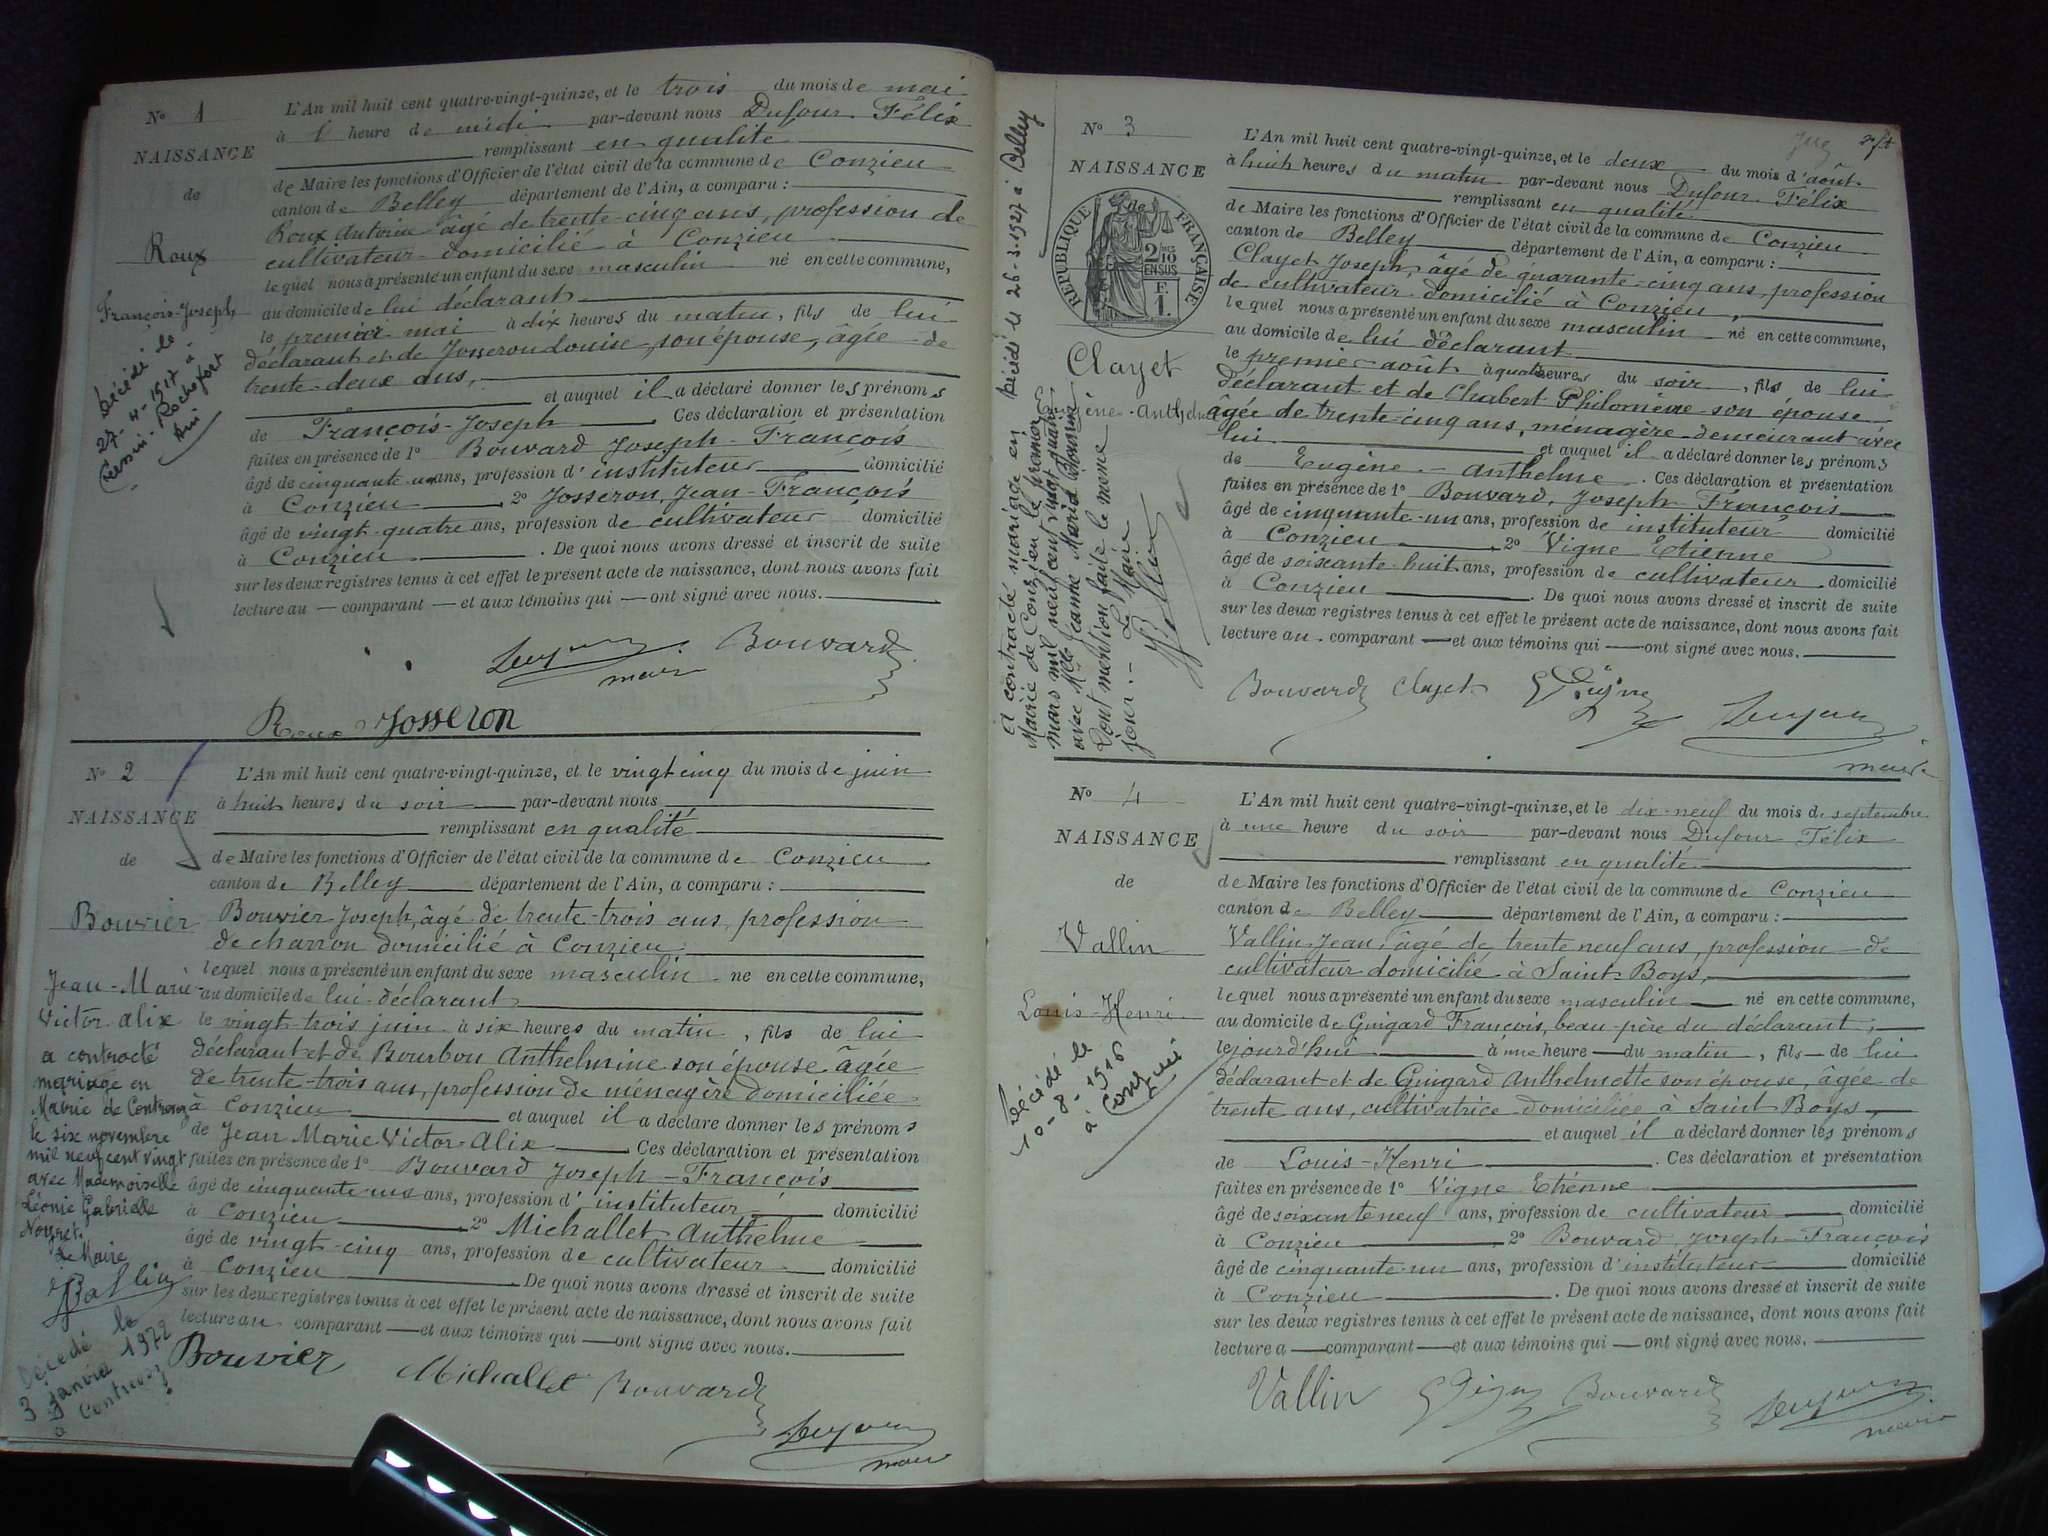 N° 1
NAISSANCE
de
Roux
François-Joseph
Décédé le
27-4-1917 à
Cressin-Rochefort
Ain
L'An mil huit cent quatre-vingt-quinze, et le trois du mois de mai
à 1 heure de midi par-devant nous Dufour Félix
remplissant en qualité
de Maire les fonctions d'Officier de l'état civil de la commune de Conzieu
canton de Belley département de l'Ain, a comparu :
Roux Antoine âgé de trente-cinq ans, profession de
cultivateur domicilié à Conzieu
lequel nous a présenté un enfant du sexe masculin né en cette commune,
au domicile de lui déclarant
le premier mai à dix heures du matin, fils de lui
déclarant et de Josseron Louise, son épouse, âgée de
trente-deux ans,
et auquel il a déclaré donner les prénoms
de François-Joseph Ces déclaration et présentation
faites en présence de 1° Bouvard Joseph-François
âgé de cinquante un ans, profession d'instituteur domicilié
à Conzieu 2° Josseron, Jean-François
âgé de vingt-quatre ans, profession de cultivateur domicilié
à Conzieu . De quoi nous avons dressé et inscrit de suite
sur les deux registres tenus à cet effet le présent acte de naissance, dont nous avons fait
lecture au comparant et aux témoins qui ont signé avec nous.
Bouvard
maire
Roux Josseron
N° 2
NAISSANCE
de
Bouvier
Jean-Marie-
Victor Alix
a contracté
mariage en
Mairie de Contrevoz
le six novembre
mil neuf cent vingt
avec Mademoiselle
Léonie Gabrielle
Noyret.
Le Maire
Décédé le
3 Janvier 1972
à Contrevoz
L'An mil huit cent quatre-vingt-quinze, et le vingt cinq du mois de juin
à huit heures du soir par-devant nous
remplissant en qualité
de Maire les fonctions d'Officier de l'état civil de la commune de Conzieu
canton de Belley département de l'Ain, a comparu :
Bouvier Joseph, âgé de trente-trois ans, profession
de charron domicilié à Conzieu
lequel nous a présenté un enfant du sexe masculin né en cette commune,
au domicile de lui déclarant
le vingt-trois juin à six heures du matin, fils de lui
déclarant et de Bourbon Anthelmine son épouse âgée
de trente-trois ans, profession de ménagère domiciliée
à Conzieu et auquel il a déclaré donner les prénoms
de Jean Marie Victor-Alix Ces déclaration et présentation
faites en présence de 1° Bouvard Joseph-François
âgé de cinquante un ans, profession d'instituteur domicilié
à Conzieu 2° Michallet Anthelme
âgé de vingt-cinq ans, profession de cultivateur domicilié
à Conzieu De quoi nous avons dressé et inscrit de suite
sur les deux registres tenus à cet effet le présent acte de naissance, dont nous avons fait
lecture au comparant et aux témoins qui ont signé avec nous.
Bouvier Michallet Bouvard
maire
N° 3
NAISSANCE
de
RÉPUBLIQUE FRANÇAISE
2/10
EN SUS
F.
1.
Clayet
Eugène-Anthelme
Décédé le 26-3-1927 à Belley
a contracté mariage en
Mairie de Conzieu le premier
mars mil neuf cent vingt quatre
avec Mlle Jeanne Maria
Dont mention faite le même
jour.- Le Maire
L'An mil huit cent quatre-vingt-quinze, et le deux du mois d'août
à huit heures du matin par-devant nous Dufour Félix
remplissant en qualité
de Maire les fonctions d'Officier de l'état civil de la commune de Conzieu
canton de Belley département de l'Ain, a comparu :
Clayet Joseph, âgé de quarante-cinq ans, profession
de cultivateur domicilié à Conzieu,
lequel nous a présenté un enfant du sexe masculin né en cette commune,
au domicile de lui déclarant
le premier août à quatre heures du soir, fils de lui
déclarant et de Chabert Philomène son épouse
âgée de trente-cinq ans, ménagère demeurant avec
lui et auquel il a déclaré donner les prénoms
de Eugène-Anthelme. Ces déclaration et présentation
faites en présence de 1° Bouvard, Joseph-François
âgé de cinquante-un ans, profession de instituteur domicilié
à Conzieu 2° Vigne Etienne
âgé de soixante-huit ans, profession de cultivateur domicilié
à Conzieu . De quoi nous avons dressé et inscrit de suite
sur les deux registres tenus à cet effet le présent acte de naissance, dont nous avons fait
lecture au comparant et aux témoins qui ont signé avec nous.
Bouvard Clayet E Vigne
maire
N° 4
NAISSANCE
de
Vallin
Louis-Henri
Décédé le
10-8-1916
à Conzieu
L'An mil huit cent quatre-vingt-quinze, et le dix-neuf du mois de septembre
à une heure du soir par-devant nous Dufour Félix
remplissant en qualité
de Maire les fonctions d'Officier de l'état civil de la commune de Conzieu
canton de Belley département de l'Ain, a comparu :
Vallin Jean, âgé de trente neuf ans, profession de
cultivateur domicilié à Saint Boys,
lequel nous a présenté un enfant du sexe masculin né en cette commune,
au domicile de Guigard François, beau-père du déclarant,
le jourd'hui à une heure du matin, fils de lui
déclarant et de Guigard Anthelmette son épouse, âgée de
trente ans, cultivatrice domiciliée à Saint Boys,
et auquel il a déclaré donner les prénoms
de Louis-Henri . Ces déclaration et présentation
faites en présence de 1° Vigne Etienne
âgé de soixante neuf ans, profession de cultivateur domicilié
à Conzieu 2° Bouvard, Joseph-François
âgé de cinquante-un ans, profession d'instituteur domicilié
à Conzieu . De quoi nous avons dressé et inscrit de suite
sur les deux registres tenus à cet effet le présent acte de naissance, dont nous avons fait
lecture a comparant et aux témoins qui ont signé avec nous.
Vallin E Vigne Bouvard
maire